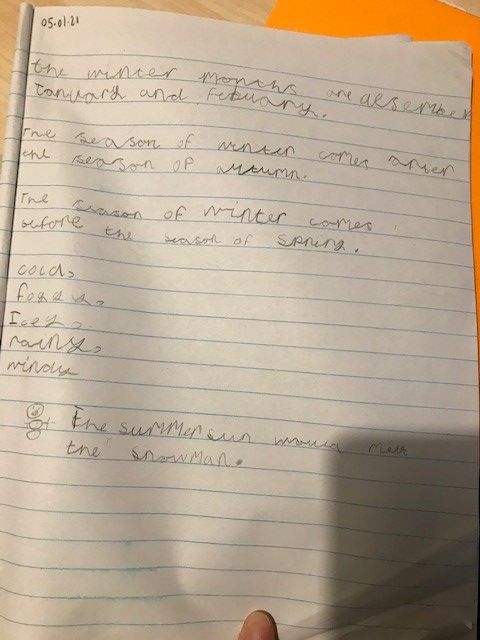 05.01.21
the winter months are desember
January and Febuary.
The season of winter comes after
the season of autumn.
The season of winter comes
before the season of spring.
cold,
foggy,
Icey,
rainy,
windy
The summer sun would melt
the snowman.